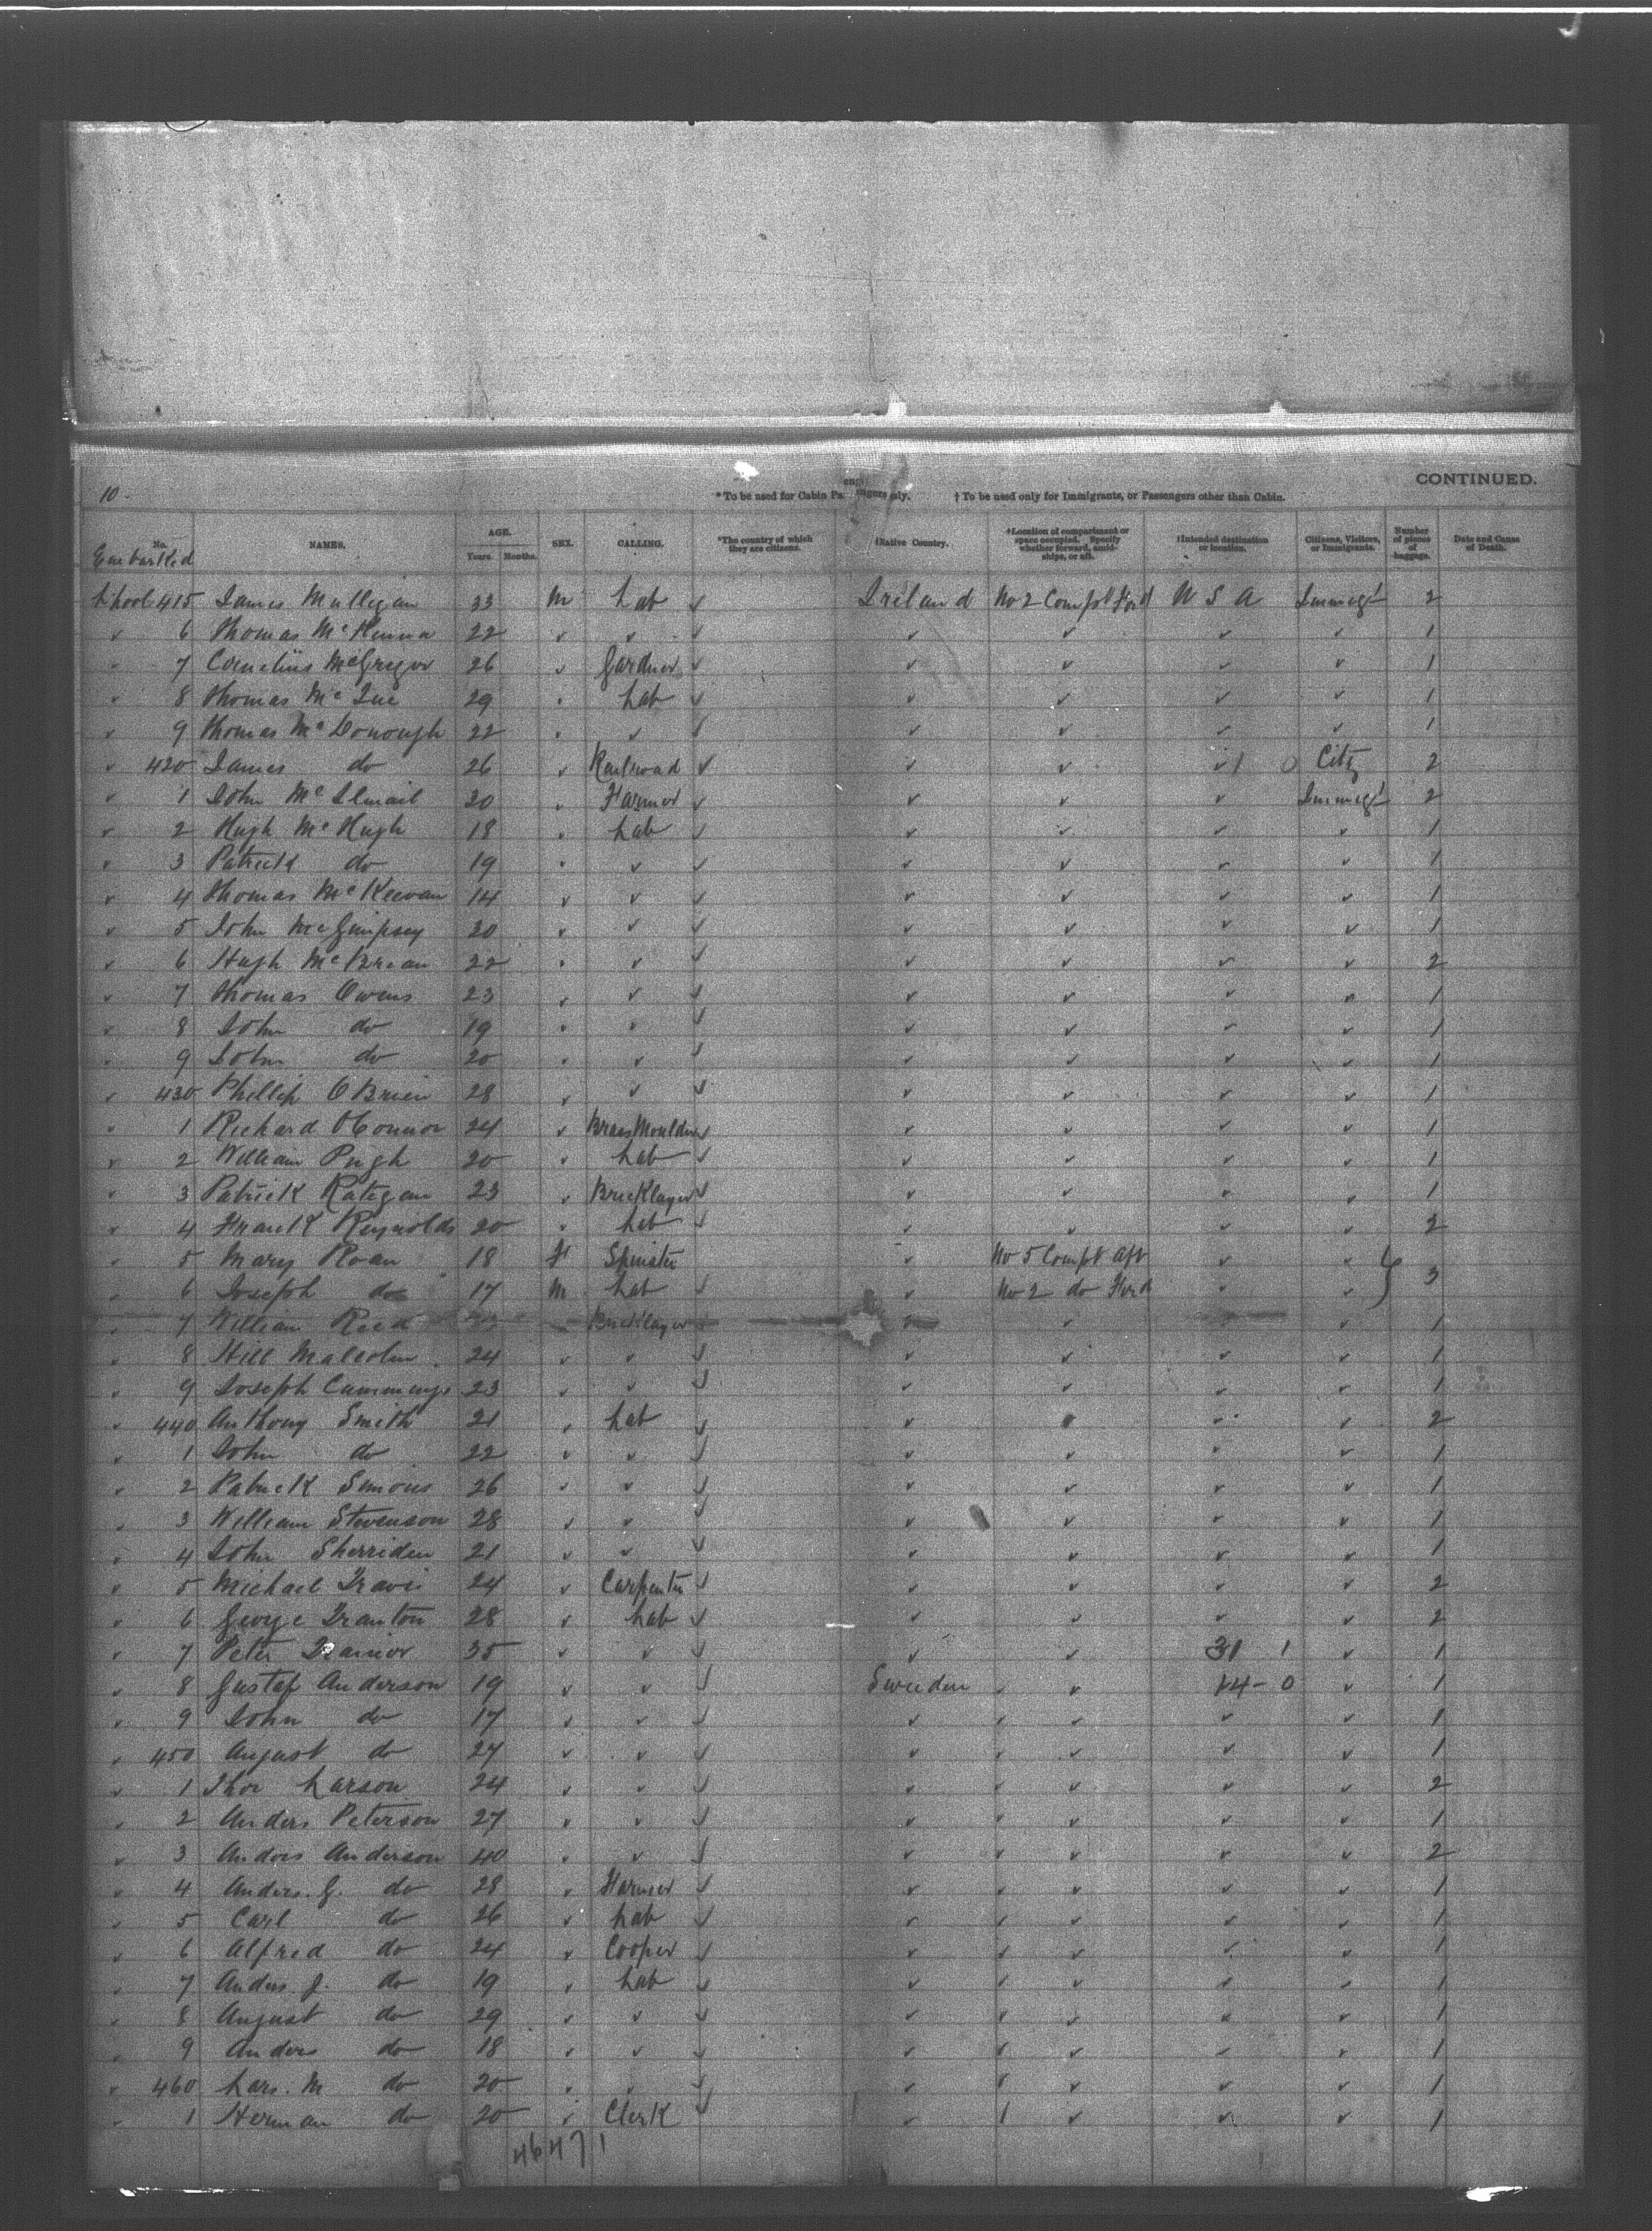 CONTINUED.
10-
*To be used for Cabin Pa engers only. † To be used only for Immigrants, or Passengers other than Cabin.
No. NAMES. AGE. Years. Months. SEX. CALLING. *The country of which they are citizens. †Native Country. †Location of compartment or space occupied. Specify whether forward, amidships, or aft. †Intended destination or location. Citizens, Visitors, or Immigrants. Number of pieces of baggage. Date and Cause of Death.
Embarked
L'pool 415 James Mulligan 33 M Lab ✓ Ireland No 2 Compt Ford U S A Immigt 2
✓ 6 Thomas McKenna 22 ✓ ✓ ✓ ✓ ✓ ✓ ✓ 1
✓ 7 Cornelius McGregor 26 ✓ Gardner ✓ ✓ ✓ ✓ ✓ 1
✓ 8 Thomas Mc 29 ✓ Lab ✓ ✓ ✓ ✓ ✓ 1
✓ 9 Thomas McDonough 22 ✓ ✓ ✓ ✓ ✓ ✓ ✓ 1
✓ 420 James do 26 ✓ Railroad ✓ ✓ ✓ ✓ 1 0 City 2
✓ 1 John 20 ✓ Farmer ✓ ✓ ✓ ✓ Immigt 2
✓ 2 Hugh McHugh 18 ✓ Lab ✓ ✓ ✓ ✓ ✓ 1
✓ 3 Patrick do 19 ✓ ✓ ✓ ✓ ✓ ✓ ✓ 1
✓ 4 Thomas McKeevan 14 ✓ ✓ ✓ ✓ ✓ ✓ ✓ 1
✓ 5 John McGimpsey 20 ✓ ✓ ✓ ✓ ✓ ✓ ✓ 1
✓ 6 Hugh McBrean 22 ✓ ✓ ✓ ✓ ✓ ✓ ✓ 2
✓ 7 Thomas Owens 23 ✓ ✓ ✓ ✓ ✓ ✓ ✓ 1
✓ 8 John do 19 ✓ ✓ ✓ ✓ ✓ ✓ ✓ 1
✓ 9 John do 20 ✓ ✓ ✓ ✓ ✓ ✓ ✓ 1
✓ 430 Phillip OBrien 28 ✓ ✓ ✓ ✓ ✓ ✓ ✓ 1
✓ 1 Richard OConnor 24 ✓ Brass Moulder ✓ ✓ ✓ ✓ ✓ 1
✓ 2 William Pugh 20 ✓ Lab ✓ ✓ ✓ ✓ ✓ 1
✓ 3 Patrick Rategan 23 ✓ Bricklayer ✓ ✓ ✓ ✓ ✓ 1
✓ 4 Franck Reynolds 20 ✓ Lab ✓ ✓ ✓ ✓ ✓ 2
✓ 5 Mary Roan 18 F Spinster ✓ No 5 Compt Aft ✓ ✓
✓ 6 Joseph do 17 M Lab ✓ ✓ No 2 do Ford ✓ ✓ } 3
✓ 7 William Reed ✓ Bricklayer ✓ ✓ ✓ ✓ ✓ 1
✓ 8 Hill Malcolm 24 ✓ ✓ ✓ ✓ ✓ ✓ ✓ 1
✓ 9 Joseph Cummings 23 ✓ ✓ ✓ ✓ ✓ ✓ ✓ 1
✓ 440 Anthony Smith 21 ✓ Lab ✓ ✓ ✓ ✓ 2
✓ 1 John do 22 ✓ ✓ ✓ ✓ ✓ ✓ ✓ 1
✓ 2 Patrick Simons 26 ✓ ✓ ✓ ✓ ✓ ✓ ✓ 1
✓ 3 William Stevenson 28 ✓ ✓ ✓ ✓ ✓ ✓ ✓ 1
✓ 4 John Sherriden 21 ✓ ✓ ✓ ✓ ✓ ✓ ✓ 1
✓ 5 Michael Travis 24 ✓ Carpenter ✓ ✓ ✓ ✓ ✓ 2
✓ 6 George Tranton 28 ✓ Lab ✓ ✓ ✓ ✓ ✓ 2
✓ 7 Peter Trainor 35 ✓ ✓ ✓ ✓ ✓ 31 1 ✓ 1
✓ 8 Gustaf Anderson 19 ✓ ✓ ✓ Sweeden ✓ ✓ 14-0 ✓ 1
✓ 9 John do 17 ✓ ✓ ✓ ✓ ✓ ✓ ✓ ✓ 1
✓ 450 August do 27 ✓ ✓ ✓ ✓ ✓ ✓ ✓ ✓ 1
✓ 1 Thor Larson 24 ✓ ✓ ✓ ✓ ✓ ✓ ✓ ✓ 2
✓ 2 Anders Peterson 27 ✓ ✓ ✓ ✓ ✓ ✓ ✓ ✓ 1
✓ 3 Anders Anderson 40 ✓ ✓ ✓ ✓ ✓ ✓ ✓ ✓ 2
✓ 4 Anders. G. do 28 ✓ Farmer ✓ ✓ ✓ ✓ ✓ ✓ 1
✓ 5 Carl do 26 ✓ Lab ✓ ✓ ✓ ✓ ✓ ✓ 1
✓ 6 Alfred do 24 ✓ Cooper ✓ ✓ ✓ ✓ ✓ ✓ 1
✓ 7 Anders J. do 19 ✓ Lab ✓ ✓ ✓ ✓ ✓ ✓ 1
✓ 8 August do 29 ✓ ✓ ✓ ✓ ✓ ✓ ✓ ✓ 1
✓ 9 Anders do 18 ✓ ✓ ✓ ✓ ✓ ✓ ✓ ✓ 1
✓ 460 Lars. M do 20 ✓ ✓ ✓ ✓ ✓ ✓ ✓ ✓ 1
✓ 1 Herman do 20 ✓ Clerk ✓ ✓ ✓ ✓ ✓ 1
46 47 1